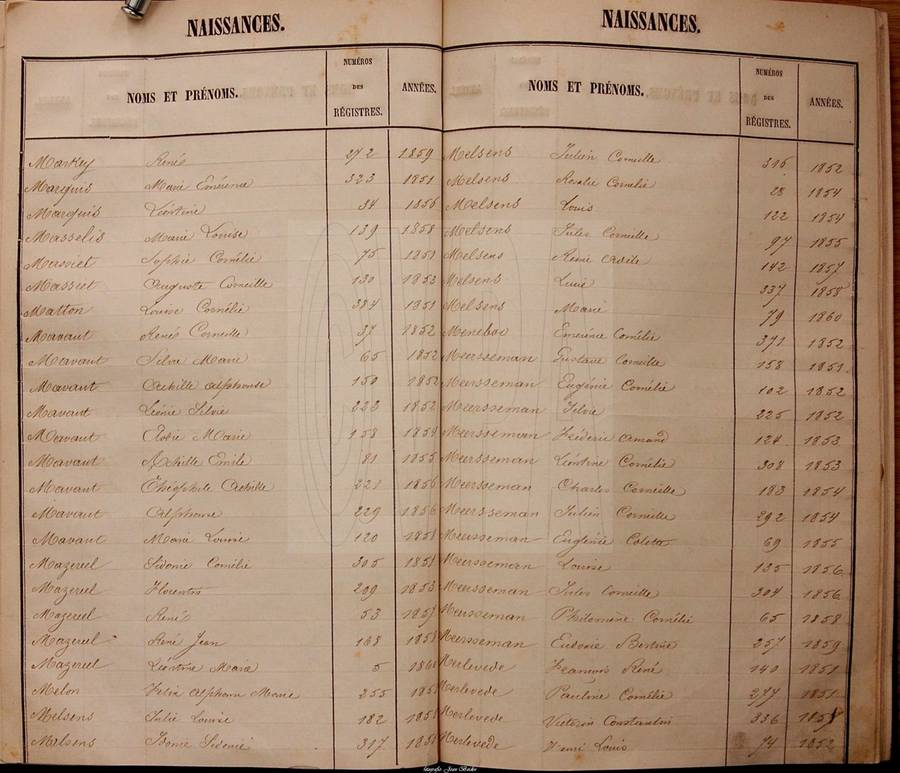 NAISSANCES.
NOMS ET PRÉNOMS. NUMÉROS DES RÉGISTRES. ANNÉES.
Markey René 272 1859
Marquis Marie Emérence 323 1851
Marquis Léontine 34 1856
Masselis Marie Louise 139 1858
Massiet Sophie Cornélie 75 1851
Massiet Auguste Corneille 130 1853
Matton Louise Cornélie 384 1851
Mavaut René Corneille 37 1852
Mavaut Silvie Marie 65 1852
Mavaut Achille Alphonse 150 1852
Mavaut Léonie Silvie 223 1852
Mavaut Elodie Marie 158 1854
Mavaut Achille Emile 81 1855
Mavaut Théophile Achille 221 1856
Mavaut Alphonse 229 1856
Mavaut Marie Louise 120 1858
Mazereel Sidonie Cornélie 305 1851
Mazereel Florentin 209 1853
Mazereel René 53 1857
Mazereel René Jean 168 1858
Mazereel Léontine Marie 5 1860
Melon Félix Alphonse Marie 255 1851
Melsens Julie Louise 182 1851
Melsens Sidonie 317 1851
NAISSANCES.
NOMS ET PRÉNOMS. NUMÉROS DES RÉGISTRES. ANNÉES.
Melsens Julien Corneille 316 1852
Melsens Rosalie Cornélie 28 1854
Melsens Louis 122 1854
Melsens Jules Corneille 97 1855
Melsens Remi 142 1857
Melsens Louis 337 1858
Melsens Marie 79 1860
Meneboo Emérence Cornélie 371 1852
Meersseman Gustave Corneille 158 1851
Meersseman Eugénie Cornélie 102 1852
Meersseman Silvie 225 1852
Meersseman Fréderic Amand 124 1853
Meersseman Léontine Cornélie 308 1853
Meersseman Charles Corneille 183 1854
Meersseman Julien Corneille 292 1854
Meersseman Eugénie Colette 69 1855
Meersseman Louise 135 1856
Meersseman Jules Corneille 304 1856
Meersseman Philomène Cornélie 65 1858
Meersseman Eudoxie 257 1859
Merlevede François René 140 1851
Merlevede Pauline Cornélie 277 1851
Merlevede Victorin Constantin 336 1851
Merlevede Henri Louis 74 1852